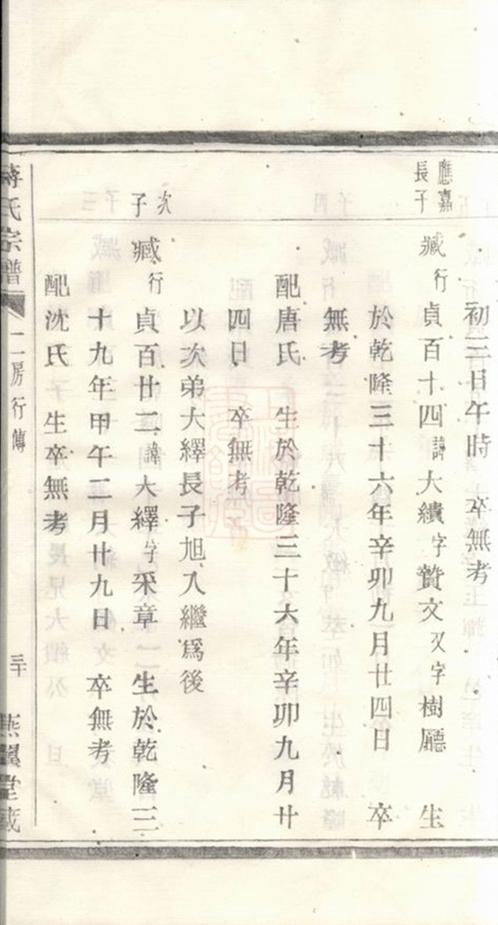 初三日午時　卒無考
應嘉
長子
臧行貞百十四諱大績字贊文又字樹廳　生
於乾隆三十六年辛卯九月廿四日　卒
無考
配唐氏　生於乾隆三十六年辛卯九月廿
四日　卒無考
以次弟大繹長子旭入繼爲後
次
子
臧行貞百廿二諱大繹字采章　生於乾隆三
十九年甲午二月廿九日　卒無考
配沈氏　生卒無考
蔣氏宗譜
二房行傳
三十
燕翼堂藏